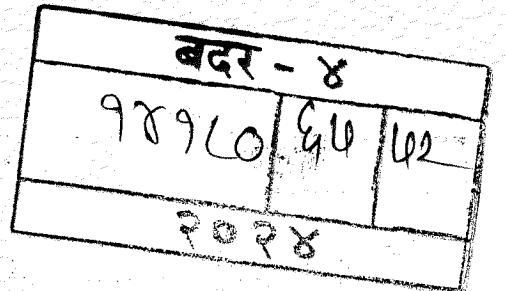 बदर - ४
१४१८० ६५ ५२
२०२४